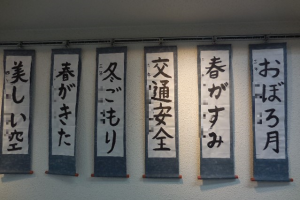 おぼろ月
春がすみ
交通安全
冬ごもり
春がきた
美しい空